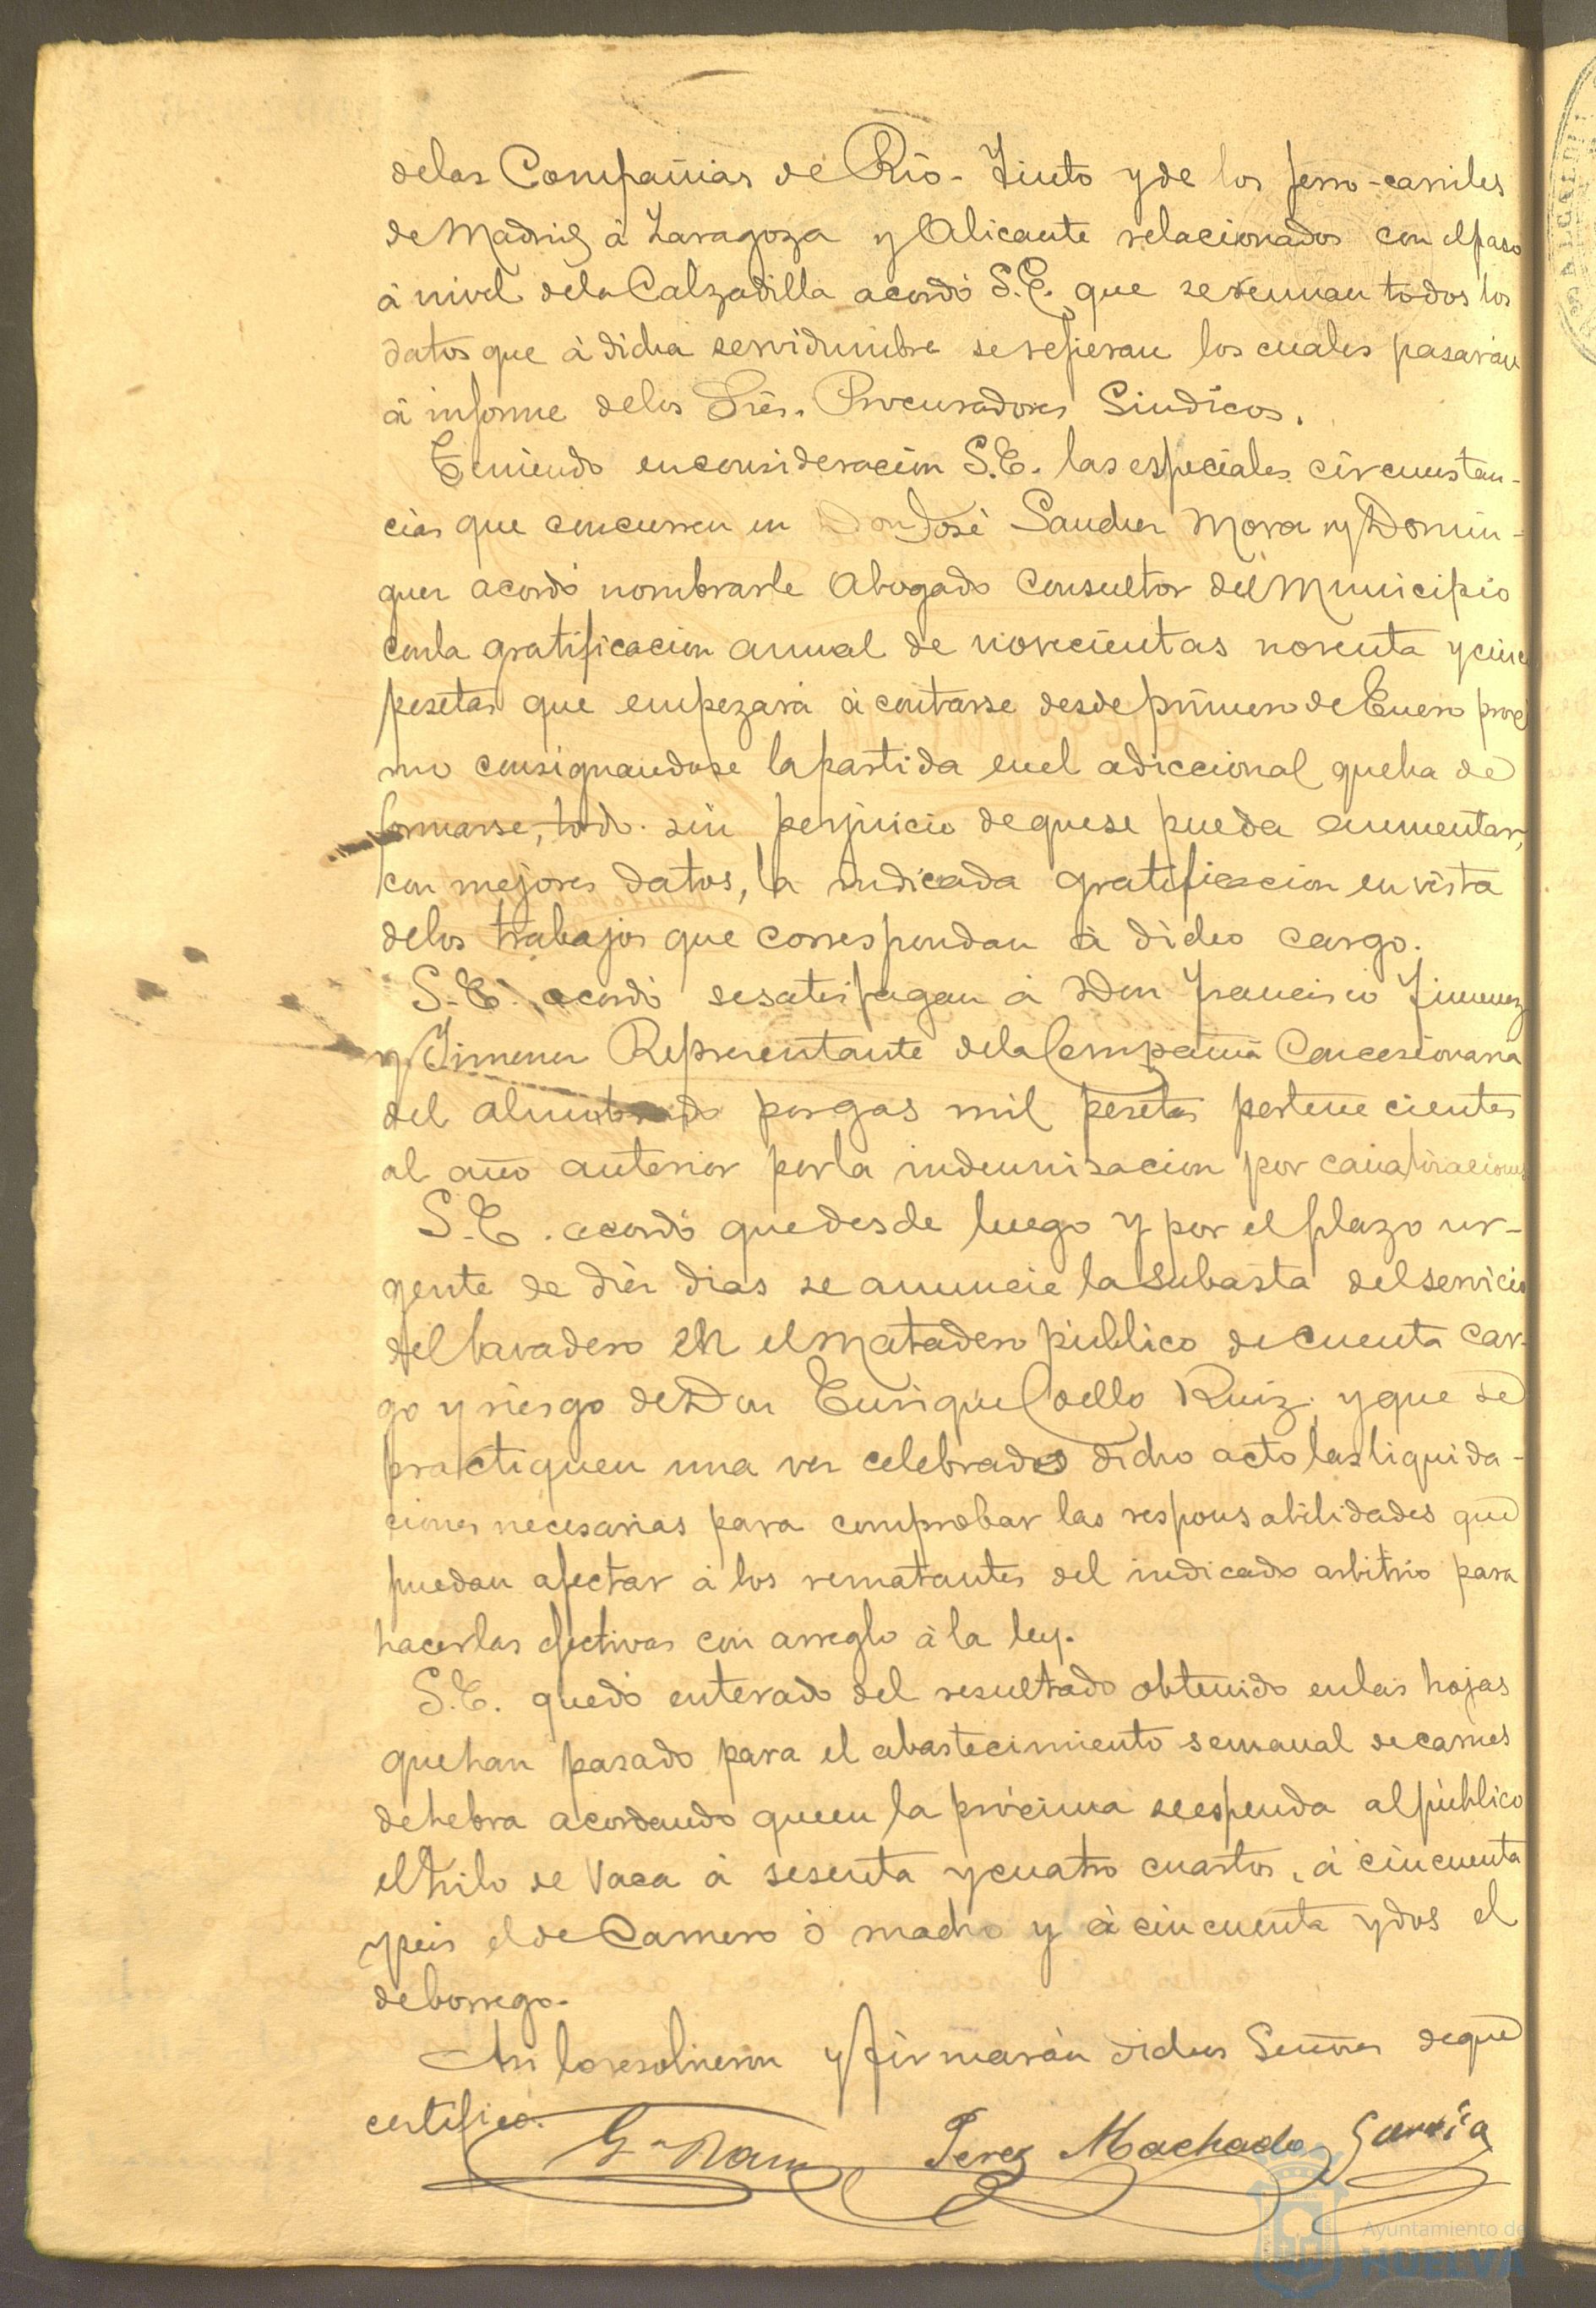 delas Compañias de Rio-Tinto y de los ferro-carriles
de Madrid á Zaragoza y Alicante relacionados con el paso
á nivel dela Calzadilla acordó S.E. que se reunan todos los
datos que á dicha servidumbre se refieran los cuales pasarán
á informe delos Sres. Procuradores Sindicos.
Teniendo en consideracion S.E. las especiales circunstan-
cias que concurren en Don José Sanchez Mora y Domin-
guez acordó nombrarle Abogado Consultor del Municipio
con la gratificacion annual de novecientas noventa y cinco
pesetas que empezará á contarse desde primero de Enero proxi
mo consignandose la partida en el adiccional que ha de
formarse, todo sin perjuicio de que se pueda aumentar,
con mejores datos, la indicada gratificacion en vista
delos trabajos que correspondan á dicho cargo.
S.E. acordó se satisfagan á Don Francisco Jimenez
y Jimenez Representante dela Compañia Concesionaria
del alumbrado por gas mil pesetas pertenecientes
al año anterior por la indemnisacion por canalizaciones
S.E. acordó que desde luego y por el plazo ur-
gente de diez dias se anuncie la subasta del servicio
del lavadero en el Matadero público de cuenta car-
go y riesgo de Don Enrique Coello Ruiz, y que se
practiquen una vez celebrados dicho acto las liquida-
ciones necesarias para comprobar las responsabilidades que
puedan afectar á los rematantes del indicado arbitrio para
hacerlas efectivas con arreglo á la ley.
S.E. quedó enterado del resultado obtenido en las hojas
que han pasado para el abastecimiento semanal de carnes
de hebra acordando que en la prócima se espenda al público
el kilo de Vaca á sesenta y cuatro cuartos, á cincuenta
y seis el de Carnero ó macho y á cincuenta y dos el
de borrego.
Asi lo resolvieron y firmarán dichos Señores de que
certifico.
Perez Machado Garcia
Ayuntamiento de
HUELVA